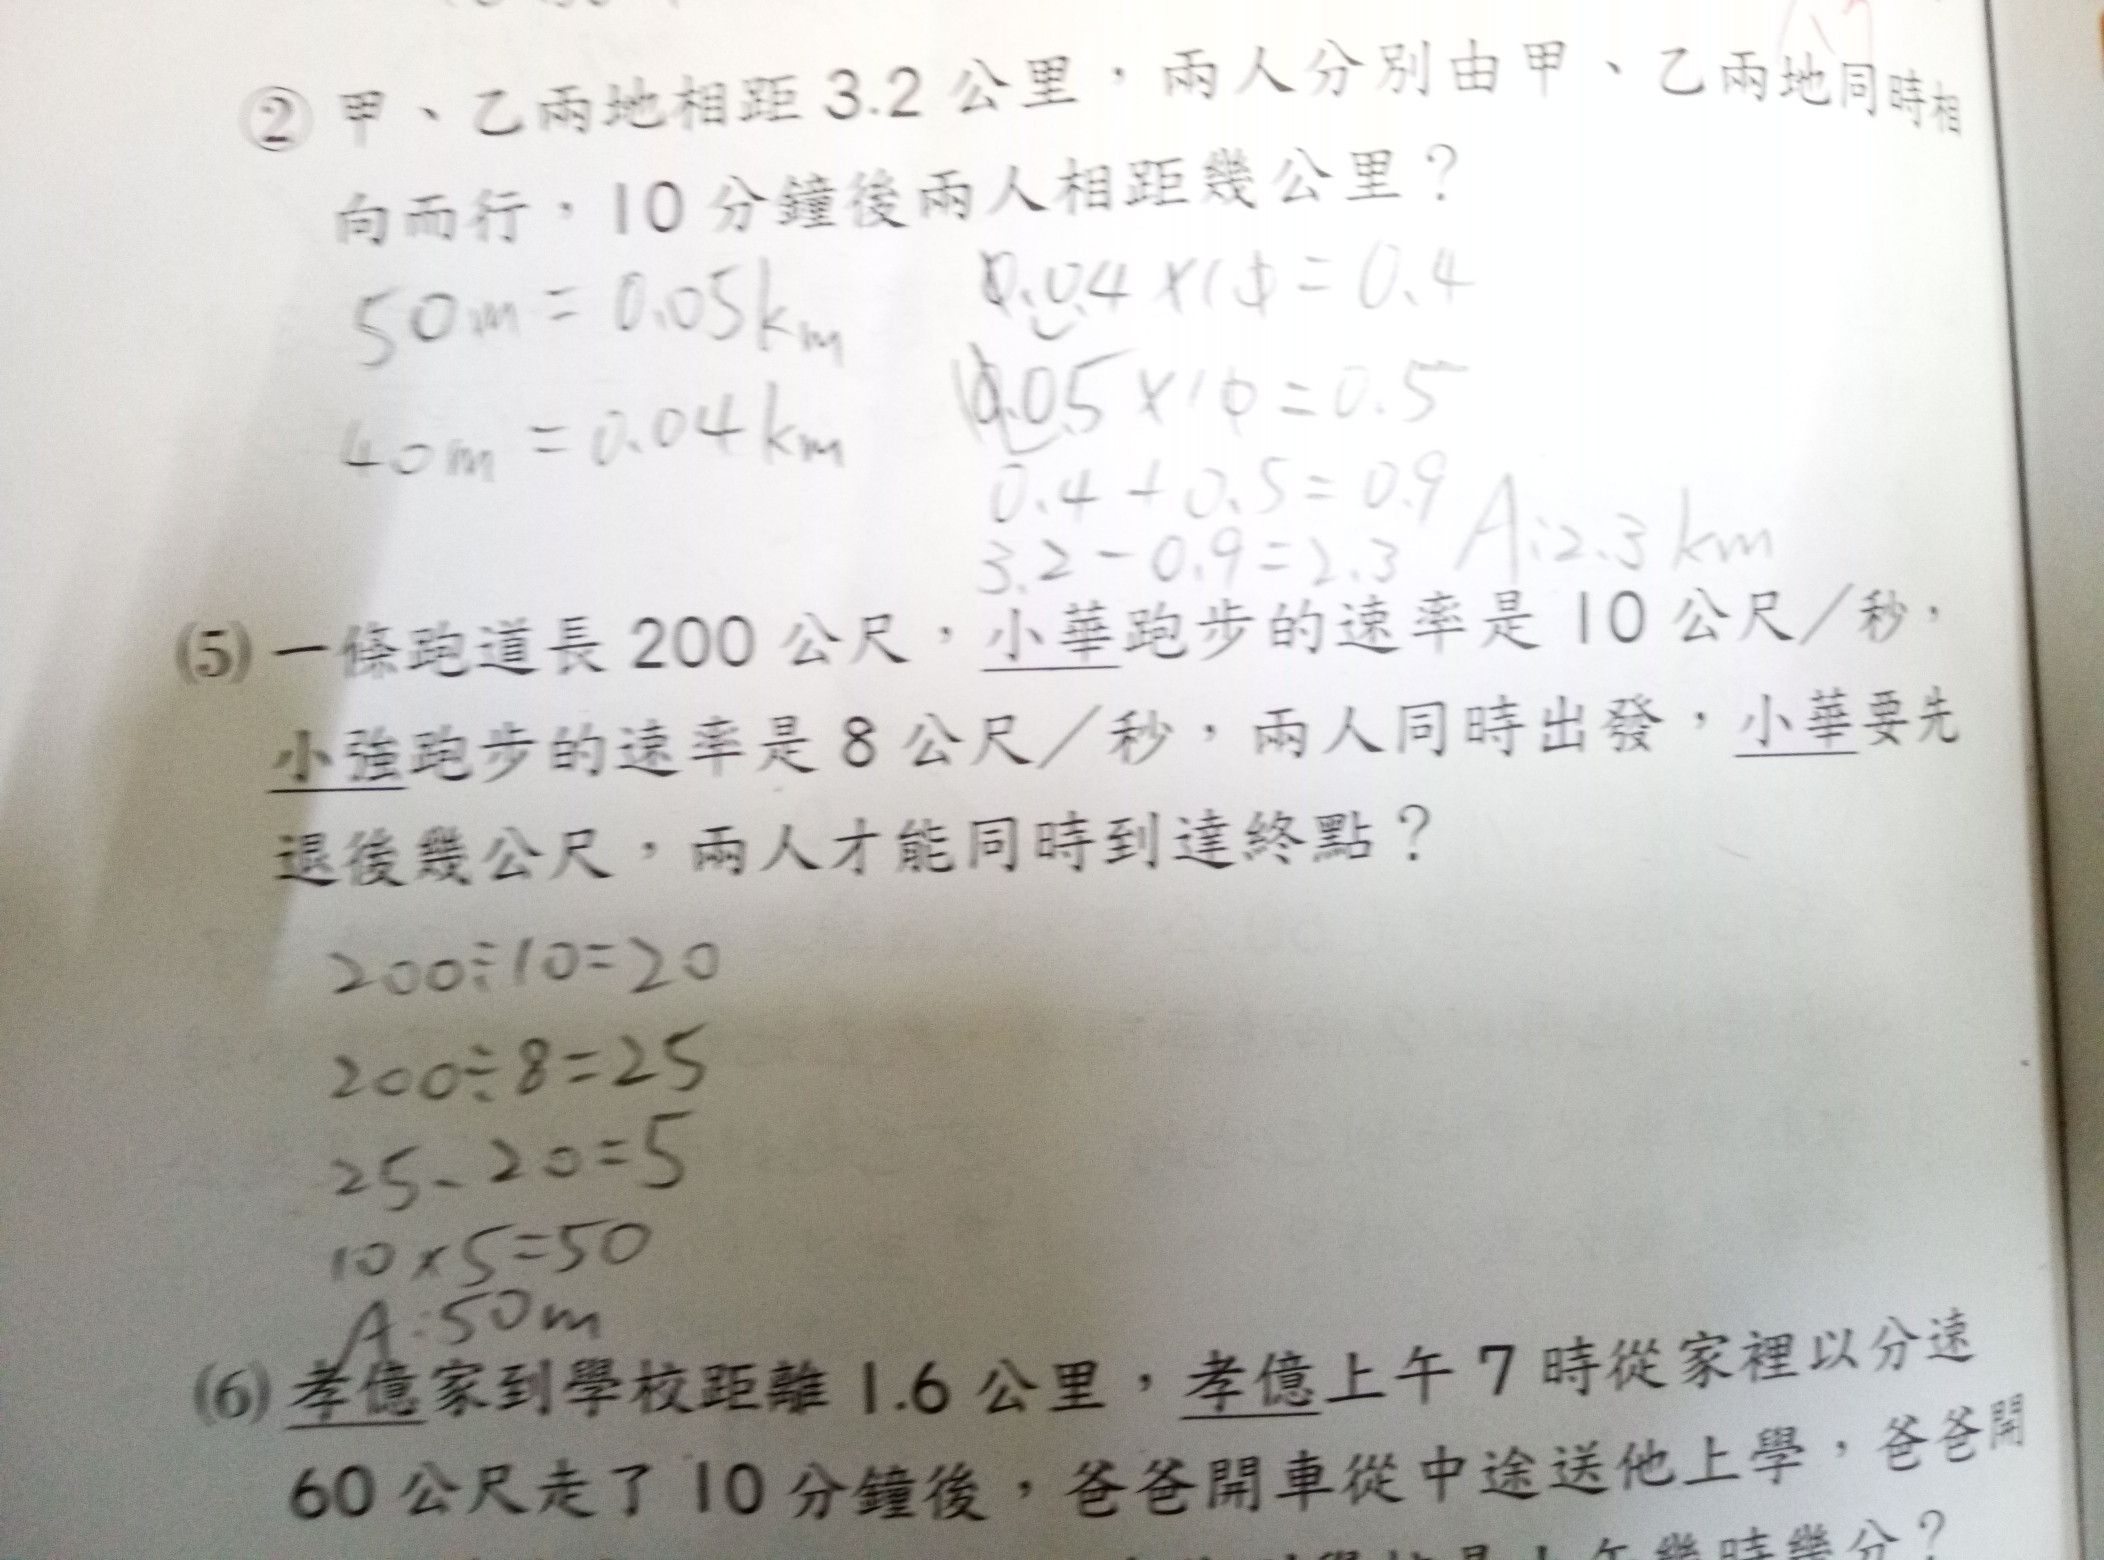 ② 甲、乙兩地相距 3.2 公里，兩人分別由甲、乙兩地同時相
向而行，10 分鐘後兩人相距幾公里？
50m = 0.05km
40m = 0.04km
0.04 ×10 = 0.4
0.05 ×10 = 0.5
0.4 + 0.5 = 0.9
3.2 - 0.9 = 2.3 A:2.3 km
(5) 一條跑道長 200 公尺，小華跑步的速率是 10 公尺／秒，
小強跑步的速率是 8 公尺／秒，兩人同時出發，小華要先
退後幾公尺，兩人才能同時到達終點？
200÷10=20
200÷8=25
25-20=5
10×5=50
A:50m
(6) 孝億家到學校距離 1.6 公里，孝億上午 7 時從家裡以分速
60 公尺走了 10 分鐘後，爸爸開車從中途送他上學，爸爸開
上午幾時幾分？